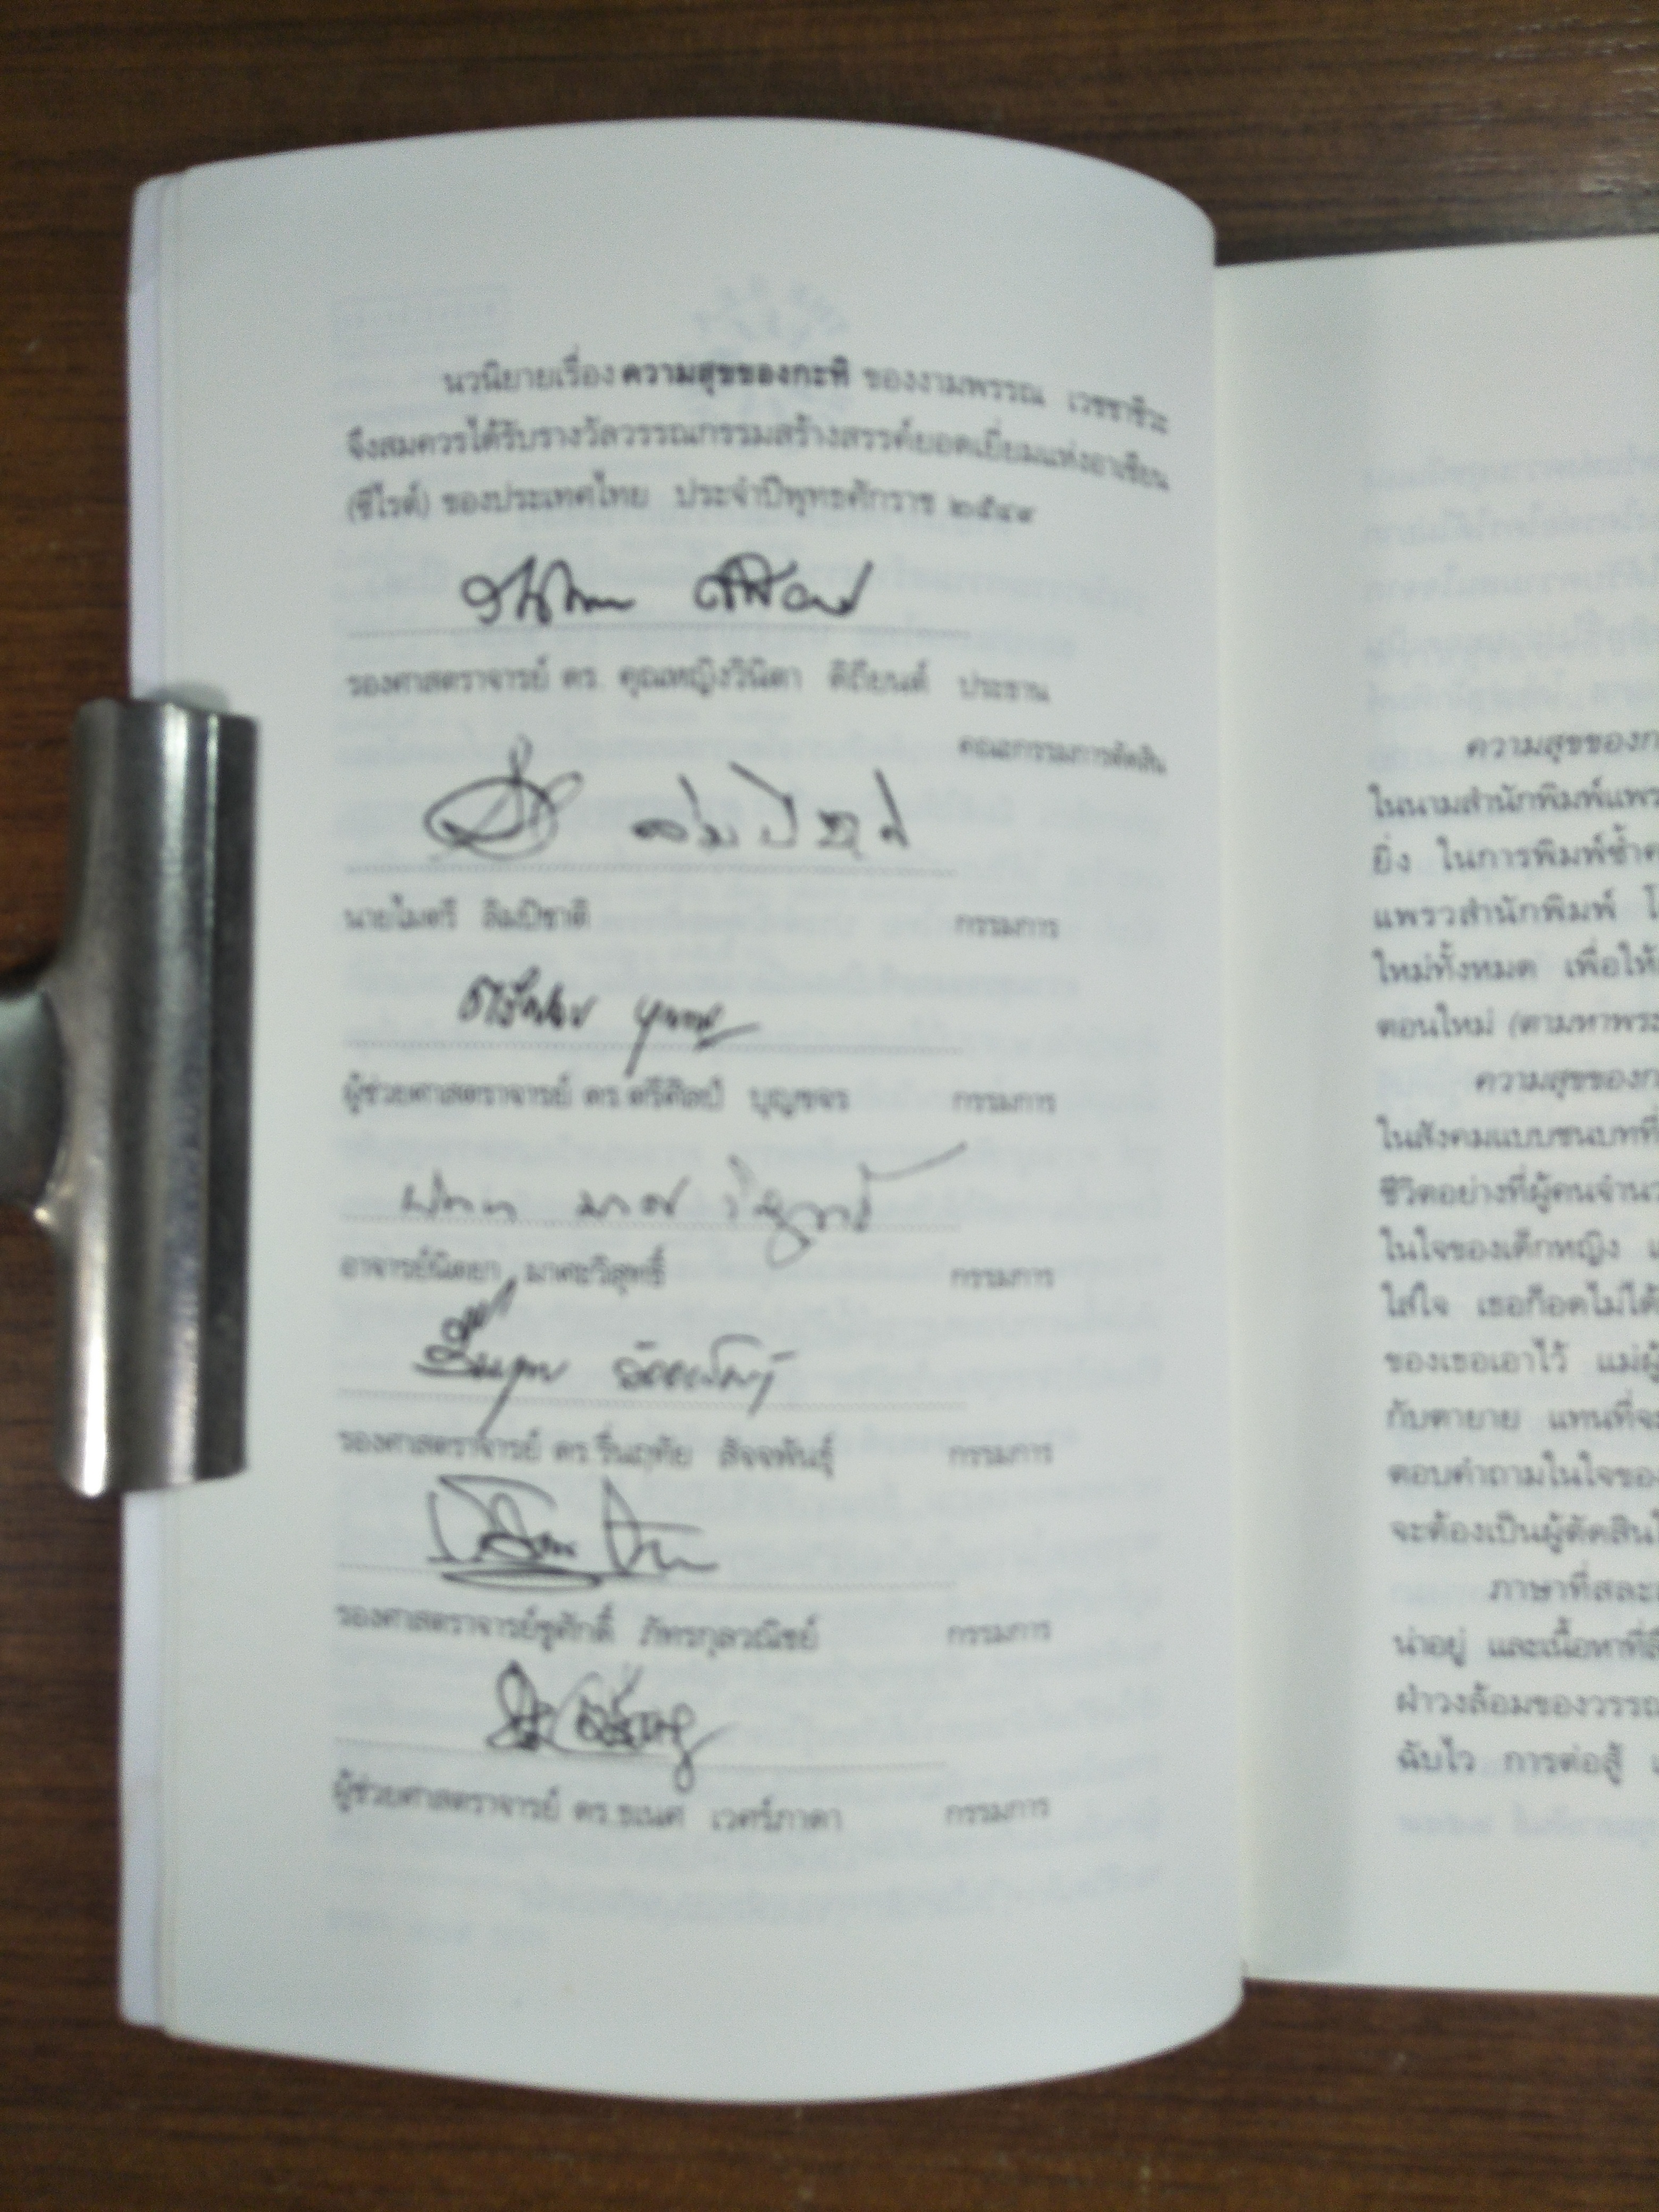 นวนิยายเรื่อง ความสุขของกะทิ ของงามพรรณ เวชชาชีวะ
จึงสมควรได้รับรางวัลวรรณกรรมสร้างสรรค์ยอดเยี่ยมแห่งอาเซียน
(ซีไรต์) ของประเทศไทย ประจำปีพุทธศักราช ๒๕๔๙
รองศาสตราจารย์ ดร. คุณหญิงวินิตา ดิถียนต์ ประธาน
คณะกรรมการตัดสิน
นายไมตรี ลิมปิชาติ กรรมการ
ผู้ช่วยศาสตราจารย์ ดร.ตรีศิลป์ บุญขจร กรรมการ
อาจารย์นิตยา มาศะวิสุทธิ์ กรรมการ
รองศาสตราจารย์ ดร.รื่นฤทัย สัจจพันธุ์ กรรมการ
รองศาสตราจารย์ชูศักดิ์ ภัทรกุลวณิชย์ กรรมการ
ผู้ช่วยศาสตราจารย์ ดร.ธเนศ เวศร์ภาดา กรรมการ
ความสุขของก
ในนามสำนักพิมพ์แพร
ยิ่ง ในการพิมพ์ซ้ำค
แพรวสำนักพิมพ์ โ
ใหม่ทั้งหมด เพื่อให้
ตอนใหม่ (ตามหาพระ
ความสุขของก
ในสังคมแบบชนบทที่
ชีวิตอย่างที่ผู้คนจำน
ในใจของเด็กหญิง แ
ใส่ใจ เธอก็อดไม่ได้
ของเธอเอาไว้ แม่ผู้
กับตายาย แทนที่จะ
ตอบคำถามในใจของ
จะต้องเป็นผู้ตัดสินใ
ภาษาที่สละ
น่าอยู่ และเนื้อหาที่สื
ฝ่าวงล้อมของวรรณ
ฉับไว การต่อสู้ แ